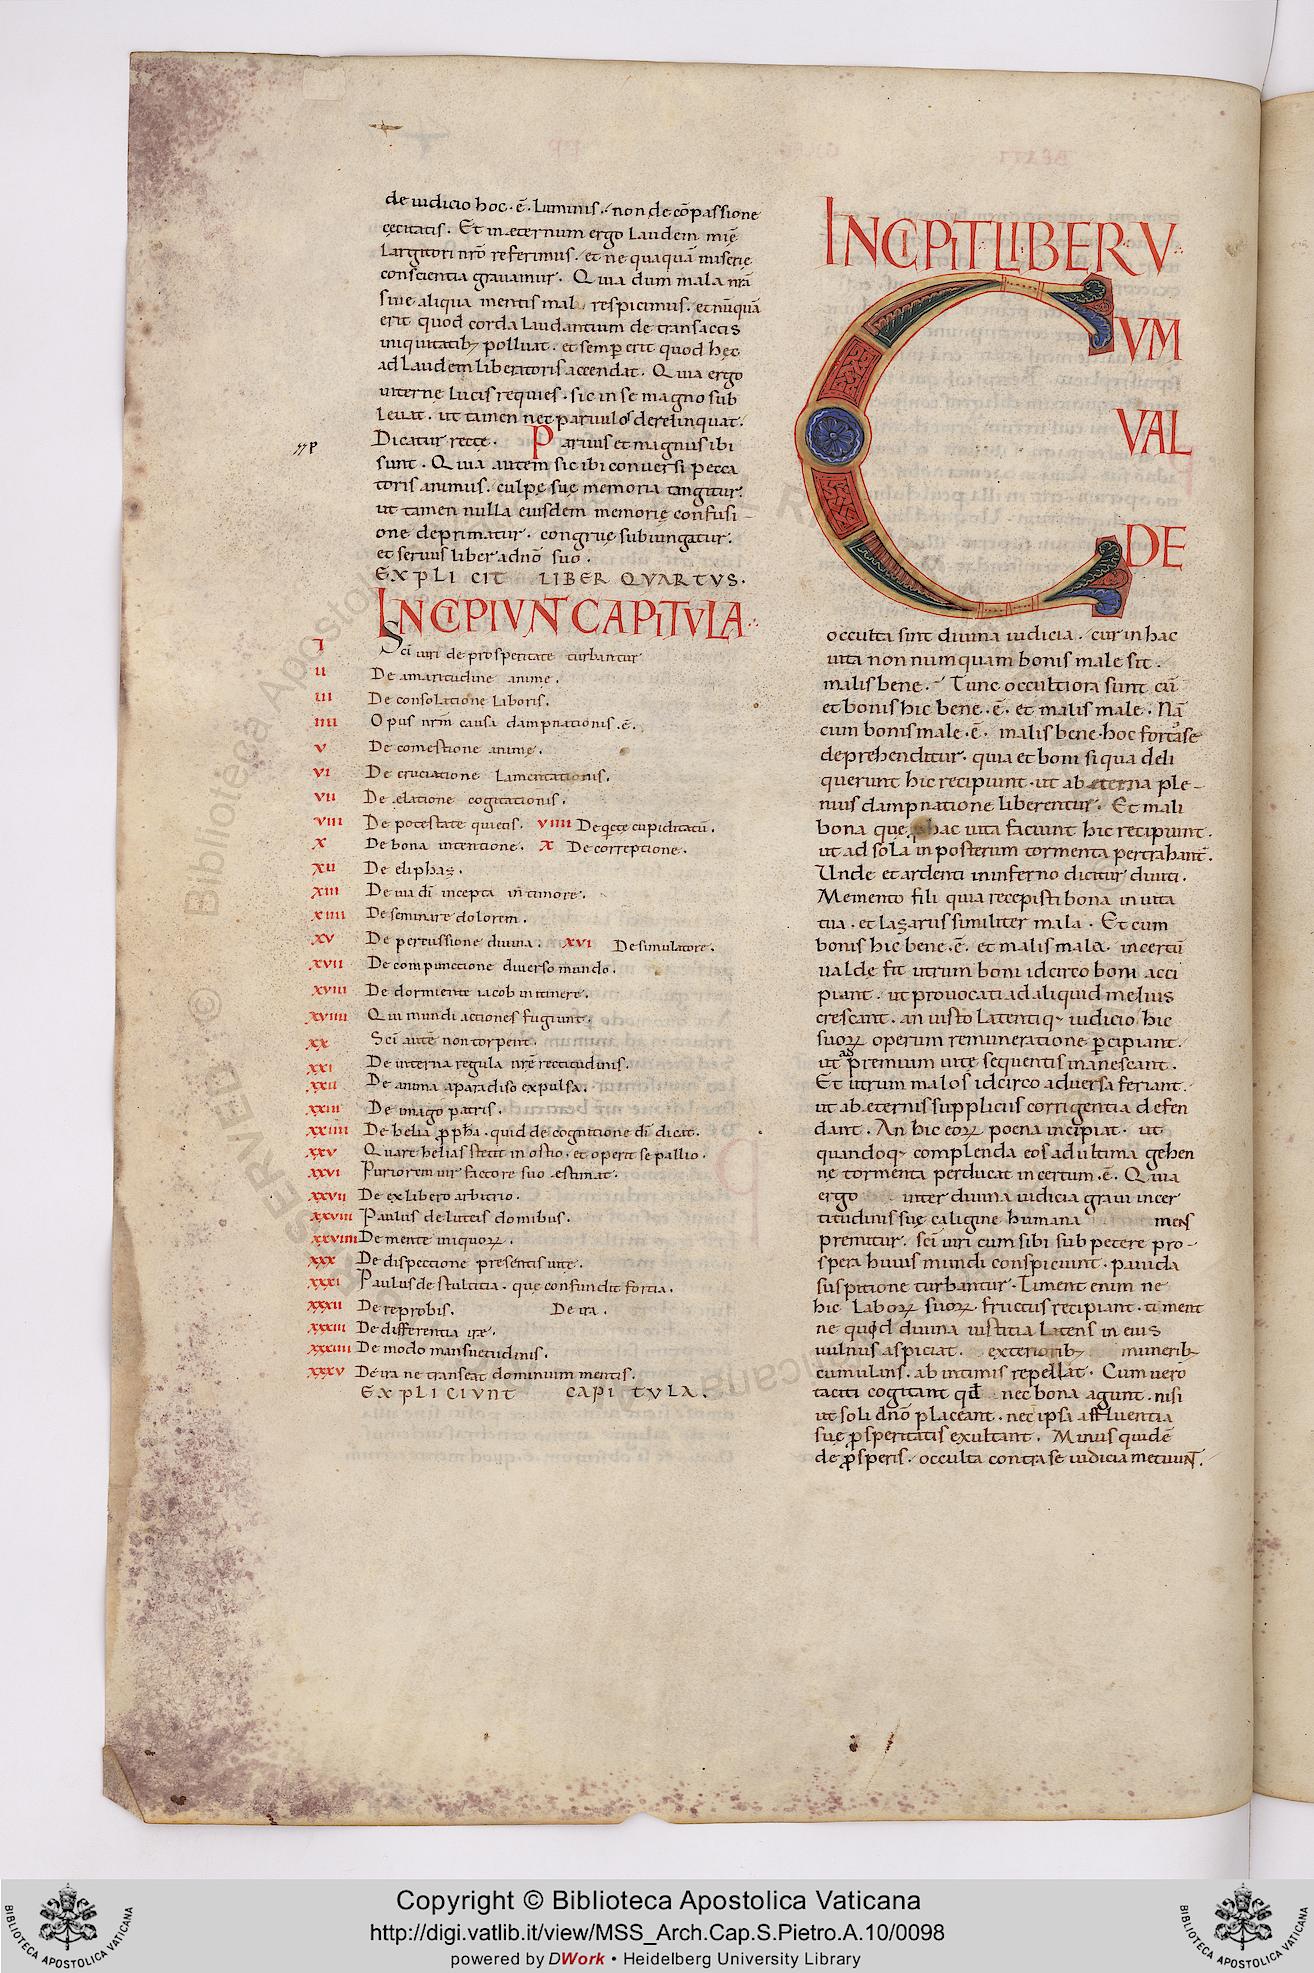 de iudicio hoc·ē·luminis. non de cōpassione
cęcitatis. Et in ęternum ergo laudem mīę
largitori nr̄o referimus. et ne quaquā miserię
conscientia gravamur. Quia dum mala nr̄a
sine aliqua mentis mal respicimus. et nūquā
erit quod corda laudantium de transactis
iniquitatib; polluat. et semp̄ erit quod hęc
ad laudem liberatoris accendat. Quia ergo
interne lucis requies. sic in se magno sub
levat. ut tamen nec parvulos derelinquat.
Dicatur rectę. Parvus et magnus ibi
sunt. Quia autem sic ibi conversi pecca
toris animus. culpę suę memoria tangitur.
ut tamen nulla eiusdem memorię confusi-
one deprimatur. congrue subiungatur.
et servus liber adn̄o suo.
EXPLICIT LIBER QVARTVS.
INCIPIVNT CAPITVLA
I Sc̄i viri de prosperitate turbantur
II De amaritudine anime.
III De consolatione laboris.
IIII Opus nr̄m causa dampnationis.ē.
V De comestione animę.
VI De cruciatione lamentationis.
VII De elatione cogitationis.
VIII De potestate quietis. VIIII De qęte cupiditatū.
X De bona intentione. X De correptione.
XII De eliphaz.
XIII De via dī incepta in timore.
XIIII De seminare dolorem.
XV De percussione divina. XVI De simulatore.
XVII De compunctione diverso mundo.
XVIII De dormiente iacob in itinere.
XVIIII Qui mundi actiones fugiunt.
XX Sc̄i autē non torpent.
XXI De interna regula nr̄e rectitudinis.
XXII De anima a paradiso expulsa.
XXIII De imago patris.
XXIIII De helia p̄pha. quid de cognitione dī dicat.
XXV Quare helias stetit in ostio. et operit se pallio.
XXVI Puriorem vir factore suo estimat.
XXVII De ex libero arbitrio.
XXVIII Paulus de luteis domibus.
XXVIIII De mente iniquorꝝ.
XXX De dispectione presentis vite.
XXXI Paulus de stultitia. que confundit fortia.
XXXII De reprobis. De ira.
XXXIII De differentia irę.
XXXIIII De modo mansuetudinis.
XXXV De ira ne transeat dominium mentis.
EXPLICIVNT CAPITVLA.
INCIPIT LIBER V
CVM
VAL
DE
occulta sint divina iudicia. cur in hac
vita non numquam bonis male sit.
malis bene. Tunc occultiora sunt cū
et bonis hic bene.ē. et malis male. Nā
cum bonis male.ē. malis bene. hoc fortasse
deprehenditur. quia et boni siqua deli
querunt hic recipiunt. ut ab eterna ple-
nius dampnatione liberentur. Et mali
bona que p hac vita faciunt hic recipiunt.
ut ad sola in posterum tormenta pertrahant̄.
Unde et ardenti in inferno dicitur diviti.
Memento fili quia recepisti bona in vita
tua. et lazarus similiter mala. Et cum
bonis hic bene.ē. et malis mala. incertū
valde fit utrum boni idcirco boni acci
piant. ut provocati ad aliquid melius
crescant. an iusto latentiq; iudicio hic
suorꝝ operum remuneratione p̄cipiant.
ut ad premium vite sequentis inanescant.
Et utrum malos idcirco adversa feriant.
ut ab eternis suppliciis corrigentia defen
dant. An hic eorꝝ poena incipiat. ut
quandoq; complenda eos ad ultima gehen
ne tormenta perducat incertum.ē. Quia
ergo inter divina iudicia gravi incer
titudinis suę caligine humana mens
premitur. sc̄i viri cum sibi subpetere pro-
spera huius mundi conspiciunt. pavida
suspitione turbantur. Timent enim ne
hic laborꝝ suorꝝ fructus recipiant. timent
ne quod divina iustitia latens in eius
vulnus aspiciat. exteriorib; munerib;
cumulans. ab intimis repellat. Cum vero
taciti cogitant qd̄ nec bona agunt. nisi
ut soli dn̄o placeant. nec ipsa affluentia
suę ꝓsperitatis exultant. Minus quidē
de ꝓsperis. occulta contra se iudicia metuuNT.
Copyright © Biblioteca Apostolica Vaticana
http://digi.vatlib.it/view/MSS_Arch.Cap.S.Pietro.A.10/0098
powered by DWork • Heidelberg University Library
BIBLIOTECA APOSTOLICA VATICANA
BIBLIOTECA APOSTOLICA VATICANA